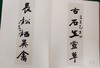 古石生靈草
長松栖異禽